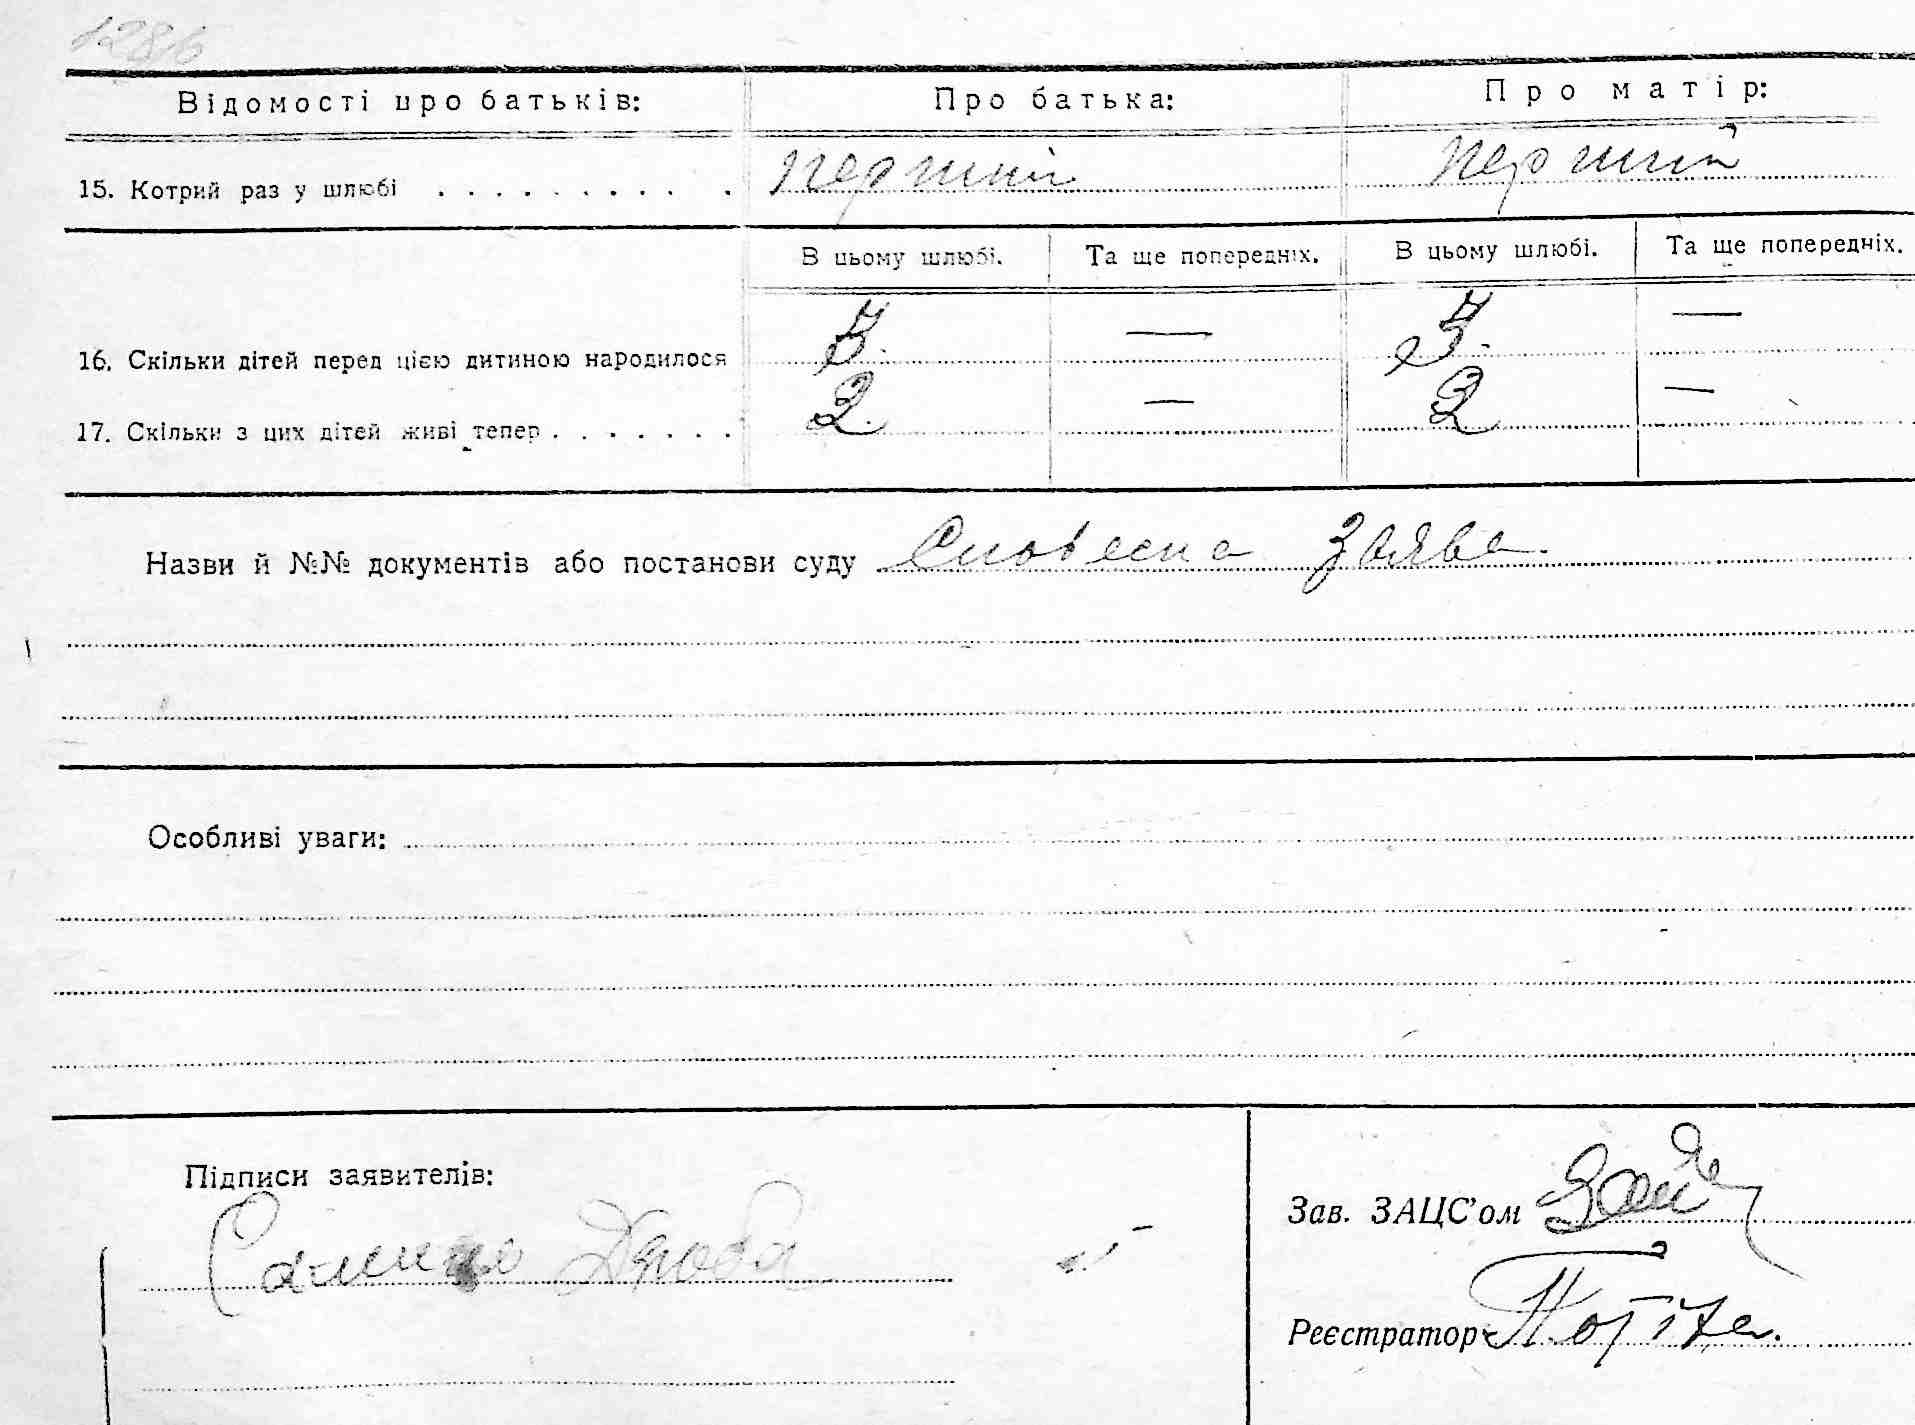 1286
Відомості про батьків: Про батька: Про матір:
15. Котрий раз у шлюбі . . . . . . . . . . перший перший
В цьому шлюбі. Та ще попередніх. В цьому шлюбі. Та ще попередніх.
16. Скільки дітей перед цією дитиною народилося — —
17. Скільки з цих дітей живі тепер . . . . . . . 2. — 2 —
Назви й №№ документів або постанови суду Словесна заява.
Особливі уваги:
Підписи заявителів:
Зав. ЗАЦС'ом
Дроба
Реєстратор